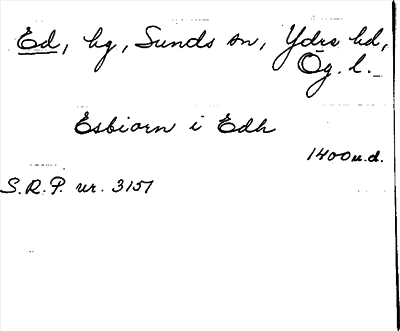 Ed, hg, Sunds sn, Ydre hd,
Ög. l.
Esbiorn i Edh
1400 u.d.
S.R.P. nr. 3151